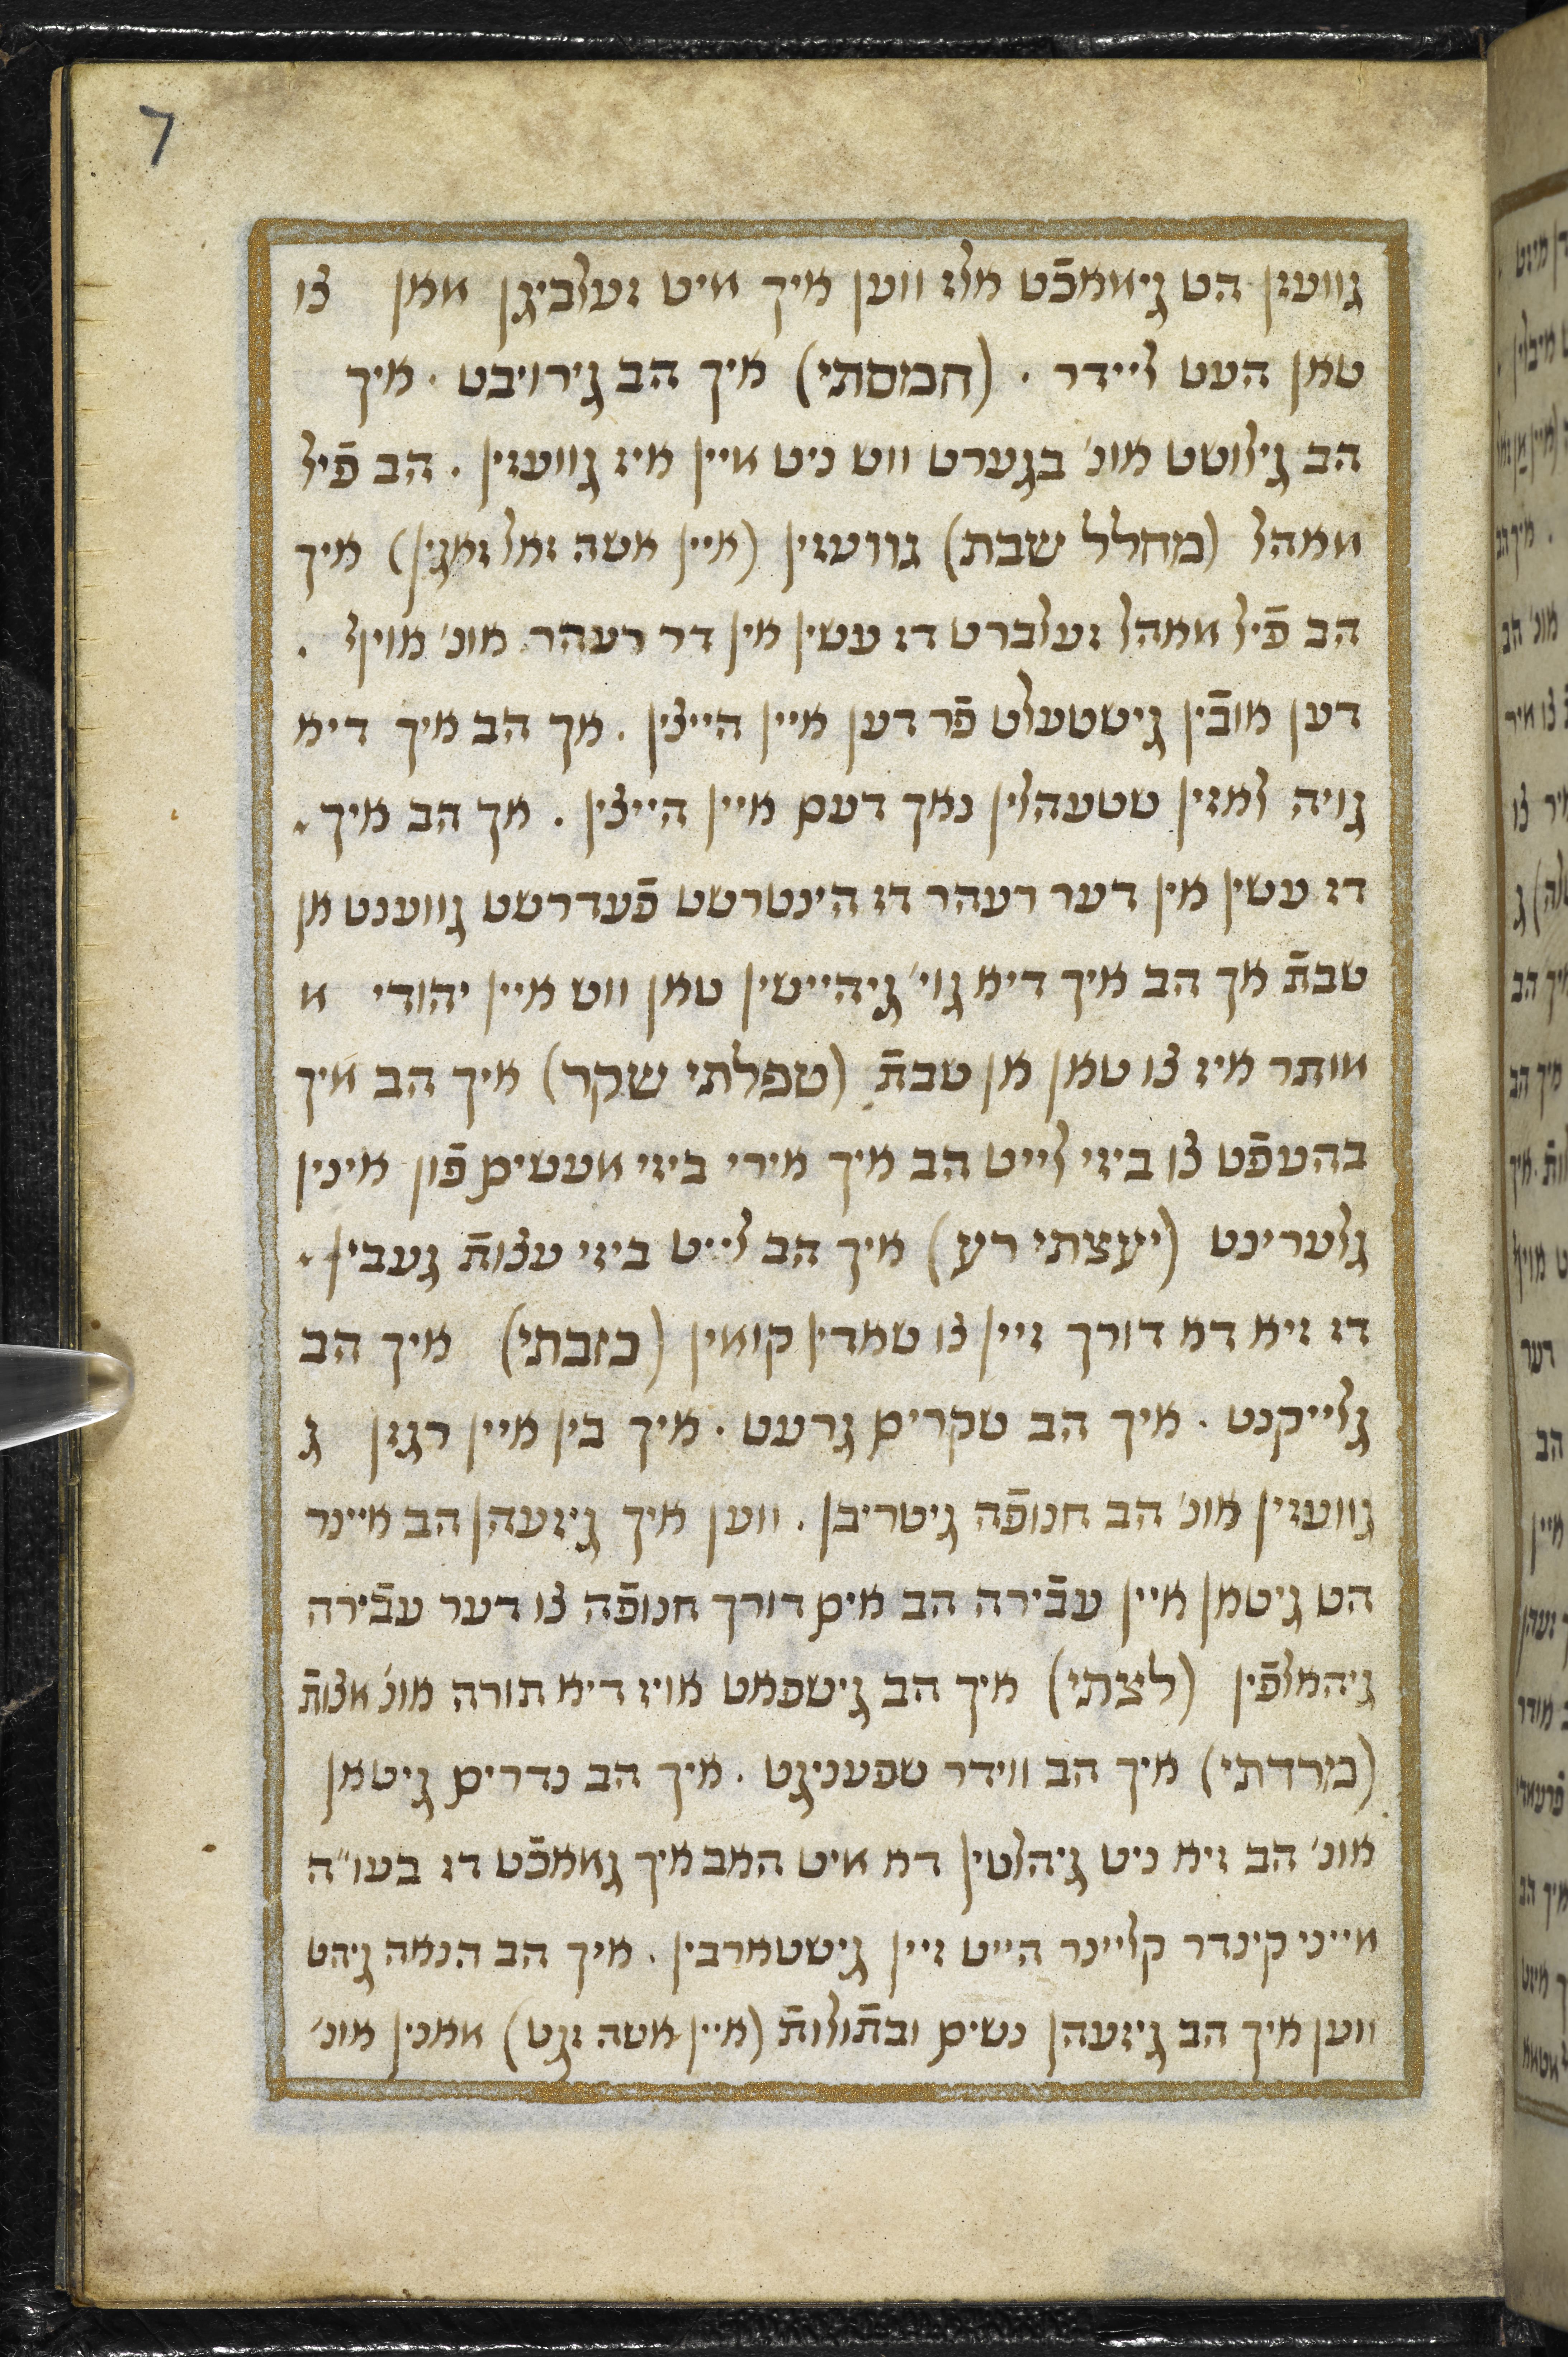 7
גוועזן הט גיאמכֿט אלז ווען איך מיט זעלביגן מאן צו
טאן העט ליידר . (חמסתי) איך הב גירויבט . איך
הב גילוסט אונ׳ בגערט ווש ניט מיין איז גוועזין . הב פֿיל
אמהל (מחלל שבת) גוועזין (איין אשה זאל זאגין) איך
הב פֿיל מאהל זעלברט דז עשין אין דר רעהר אונ׳ אויף .
דען אובֿין גישטעלט פֿר דען איין הייצין . אך הב איך דיא
גויה לאזין שטעהלין נאך דעם איין הייצין . אך הב איך .
דז עשין אין דער רעהר דז הינטרשט פֿעדרשט גווענט אן
שבתֿ אך הב איך דיא גוי׳ גיהיישין טאן ווש איין יהודי מ
מותר איז צו טאן אן שבתֿ (טפלתי שקר) איך הב מיך
בהעפֿט צו ביזי לייט הב איך אירי ביזי מעשים פֿון אינין
גלערינט (יעצתי רע) איך הב לייט ביזי עצותֿ געבין .
דז זיא דא דורך זיין צו שאדין קומין (כזבתי) איך הב
גלייקנט . איך הב שקרים גרעט . איך בין איין רגזן ג
גוועזין אונ׳ הב חנופֿה גיטריבן . ווען איך גיזעהן הב איינר
הט גיטאן איין עבֿירה הב אים דורך חנופֿה צו דער עבֿירה
גיהאלפֿין (לצתי) איך הב גישפאט אויז דיא תורה אונ׳ מצותֿ
(מרדתי) איך הב ווידר שפעניגט . איך הב נדרים גיטאן
אונ׳ הב זיא ניט גיהלטין דא מיט האב איך גאמכֿט דז בעו״ה
מייני קינדר קליינר הייט זיין גישטארבין . איך הב הנאה גיהט
ווען איך הב גיזעהן נשים ובתֿולותֿ (איין אשה זגט) אמנין אונ׳